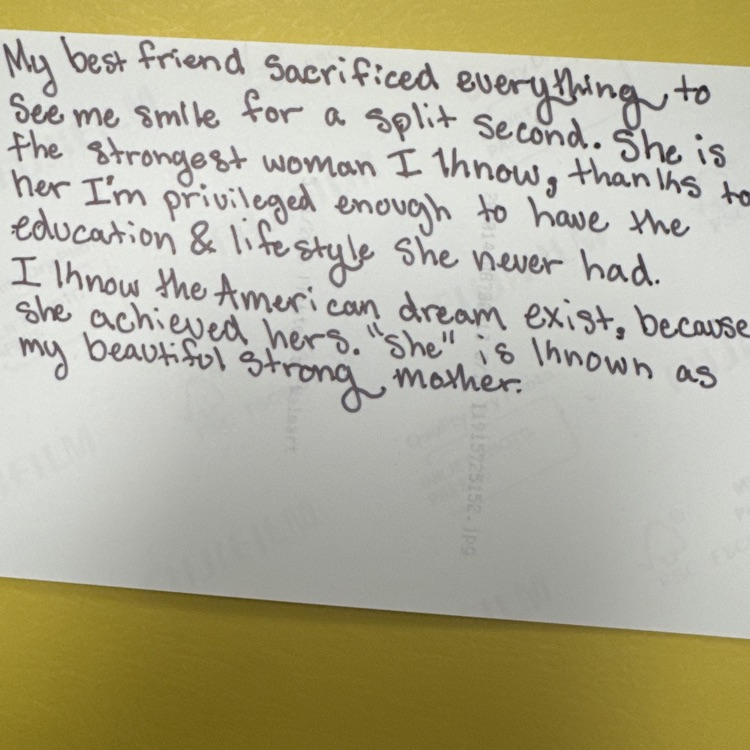 My best friend sacrificed everything to
see me smile for a split second. She is
the strongest woman I know, thanks to
her I'm privileged enough to have the
education & lifestyle she never had.
I know the American dream exist, because
she achieved hers. "She" is known as
my beautiful strong mother.
FUJIFILM
11915725152.jpg